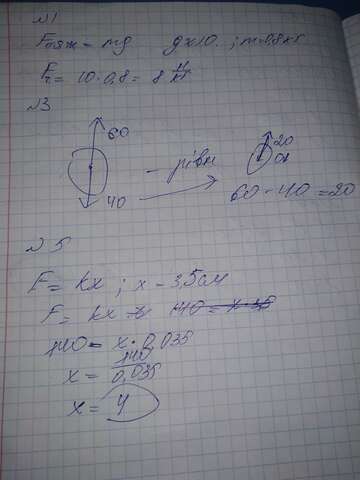 №1
Fтяж = mg g≈10. ; m=0,8кг
Fт = 10·0,8 = 8 Н/кг
№3
60
40
- рівн
20
60 - 40 = 20
№5
F = kx ; x - 3,5см
F = kx
140 = x · 0,035
x = 140/0,035
x = 4